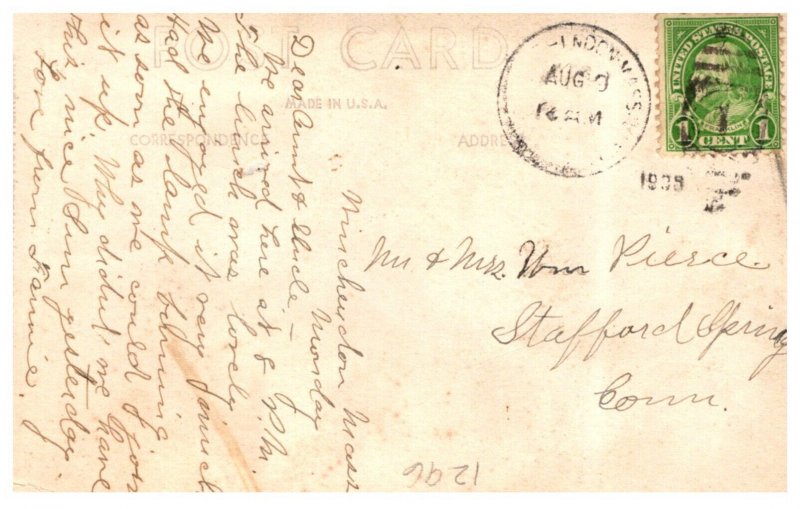 POST CARD
MADE IN U.S.A.
CORRESPONDENCE
ADDRESS
Winchendon Mass
Monday
Dear Aunt & Uncle –
We arrived here at 8 P.M.
The lunch was lovely
We enjoyed it very much
Had the lamp burning
as soon as we could
it up. Why didn't we have
this nice Sun yesterday.
Love from Fannie.
MASS.
AUG
1935
UNITED STATES POSTAGE
1 CENT 1
Mr & Mrs. Wm Pierce
Stafford Spring
Conn.
1296